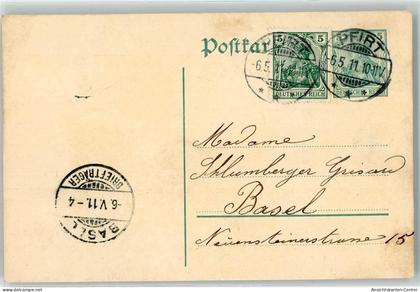 Postkar
5
DEUTSCHES REICH
PFIRT
-6.5.11.10-11V.
-6.5.
Madame
Schlumberger Grisard
Basel
Neuensteinerstrasse 15
BRIEFTRÄGER
-6.V.11.-4
BASEL
www.ansichtskarten-center.de